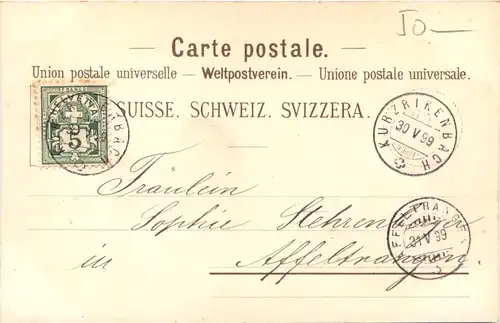 50 —
— Carte postale. —
Union postale universelle — Weltpostverein. — Unione postale universale.
SUISSE. SCHWEIZ. SVIZZERA.
HELVETIA
5
KURZRIKENBACH
30 V 99
Fräulein
Sophie
in Affeltrangen.
AFFELTRANGEN
31 V 99